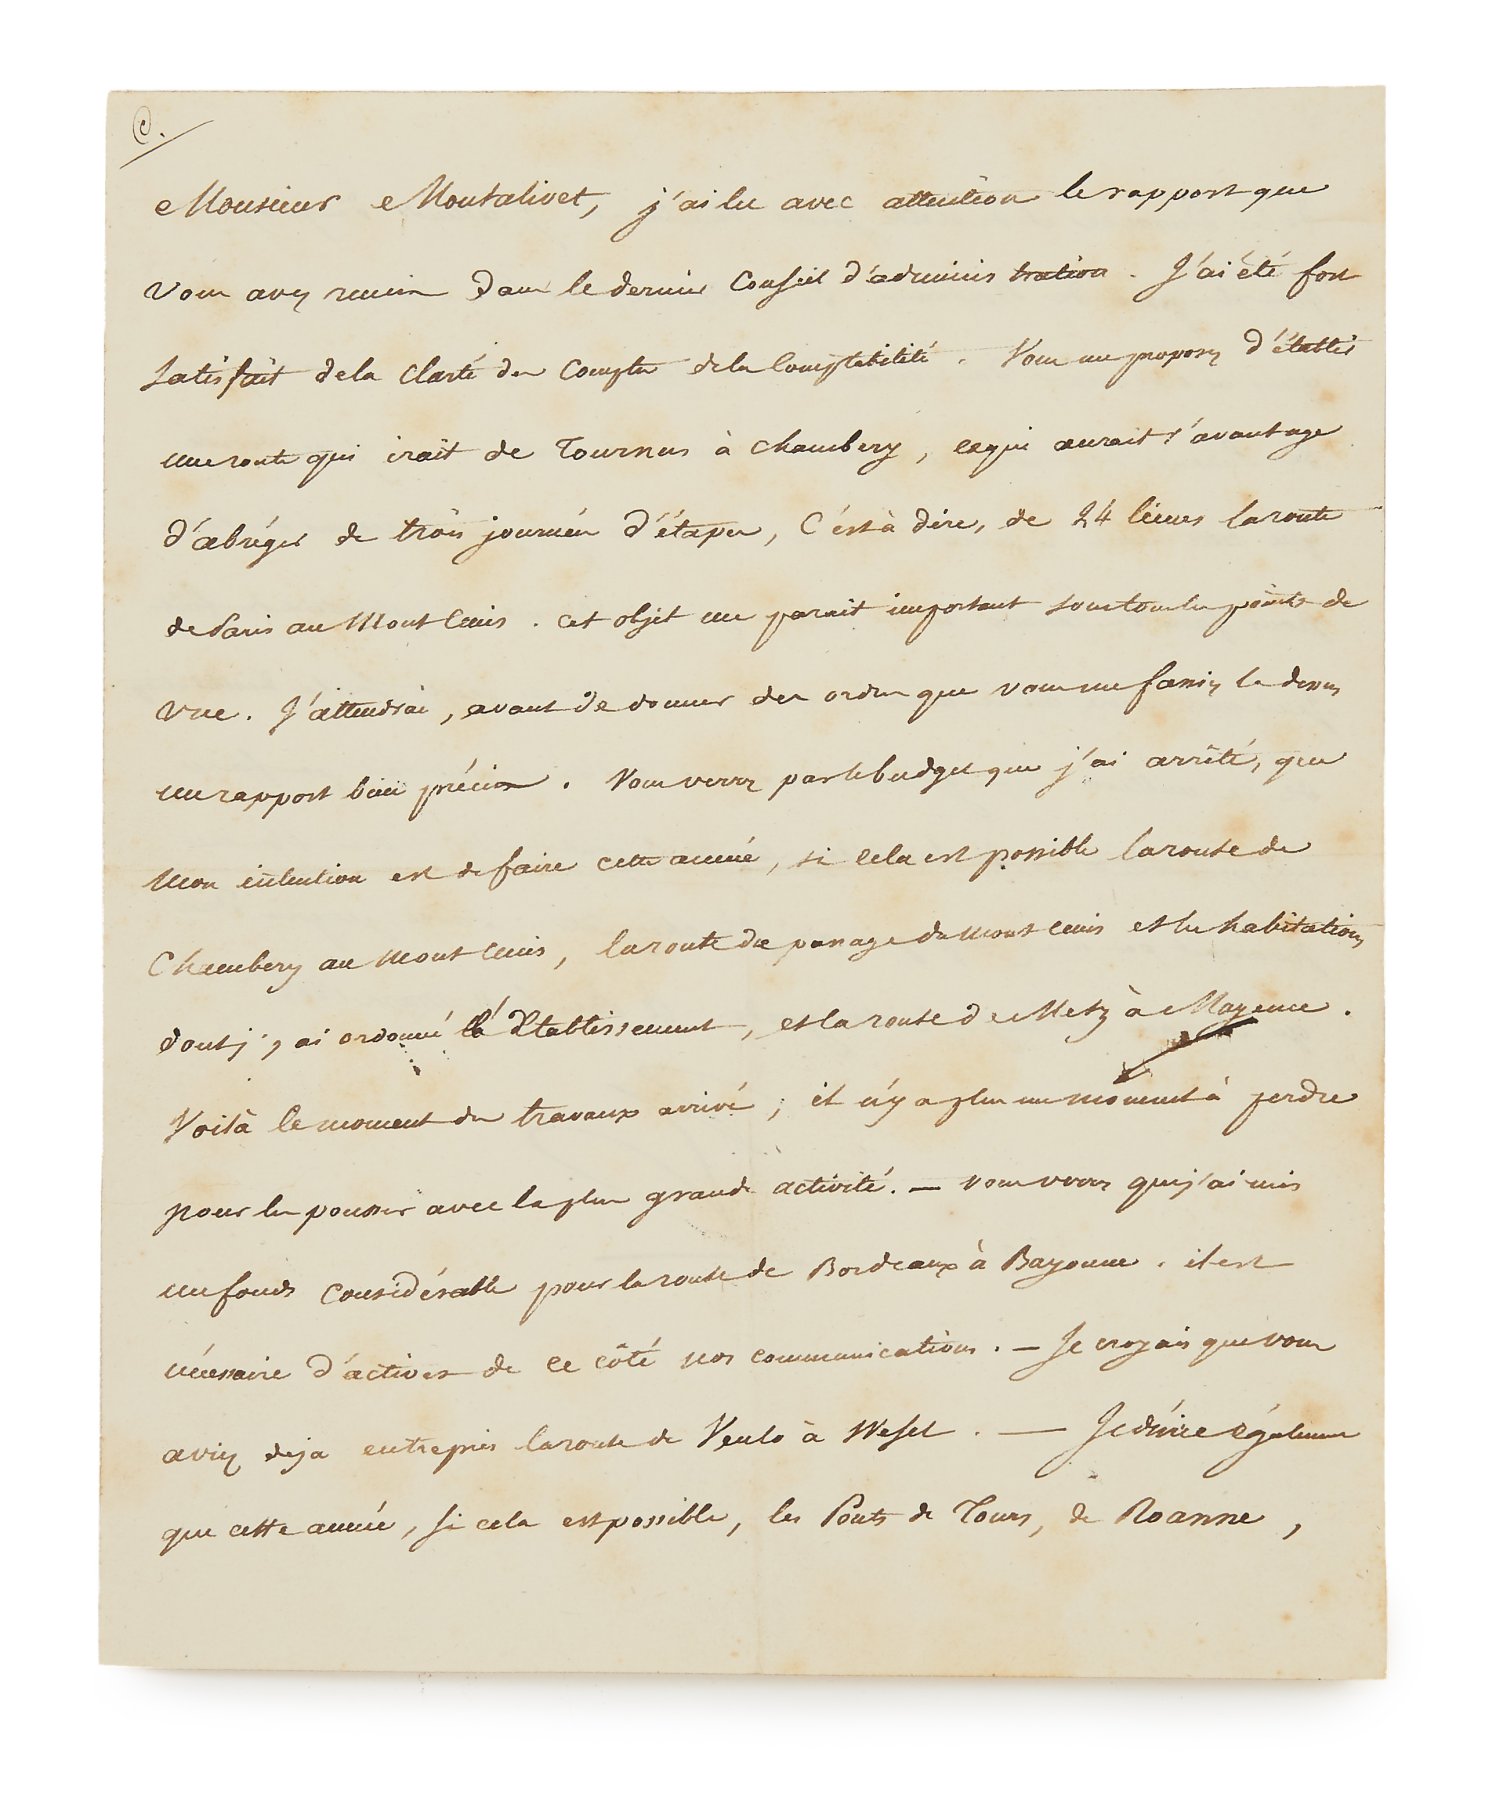 C.
Monsieur Montalivet, j'ai lu avec attention le rapport que
vous avez remis dans le dernier Conseil d'adminis tration. J'ai été fort
satisfait de la clarté des comptes de la comptabilité. Vous me proposez d'établir
une route qui irait de Tournus à Chambery, ce qui aurait l'avantage
d'abréger de trois journées d'étapes, C'est à dire, de 24 lieues la route
de Paris au Mont Cenis. Cet objet me parait important sous tous les points de
vue. J'attendrai, avant de donner des ordres que vous me fassiez la dessus
un rapport bien précis. Vous verrez par le budget que j'ai arrêté, que
mon intention est de faire cette année, si cela est possible la route de
Chambery au Mont Cenis, la route du passage du Mont Cenis et les habitations
dont j'y ai ordonné l'Etablissement, et la route de Metz à Mayence.
Voilà le moment des travaux arrivé; il n'y a plus un moment à perdre
pour les pousser avec la plus grande activité. — vous verrez que j'ai mis
un fonds considérable pour la route de Bordeaux à Bayonne. il est
nécessaire d'activer de ce côté nos communications. — Je croyais que vous
aviez deja entrepris la route de Venlo à Wesel. — Je désire également
que cette année, si cela est possible, les Ponts de Tours, de Roanne,